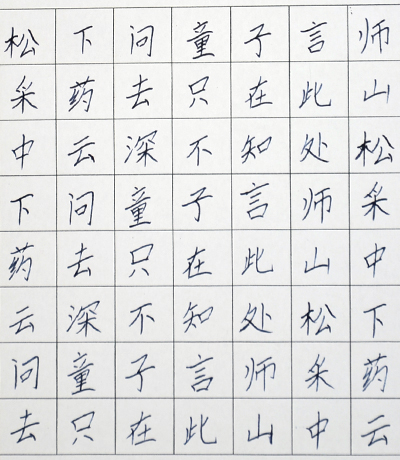 松下问童子言师
采药去只在此山
中云深不知处松
下问童子言师采
药去只在此山中
云深不知处松下
问童子言师采药
去只在此山中云